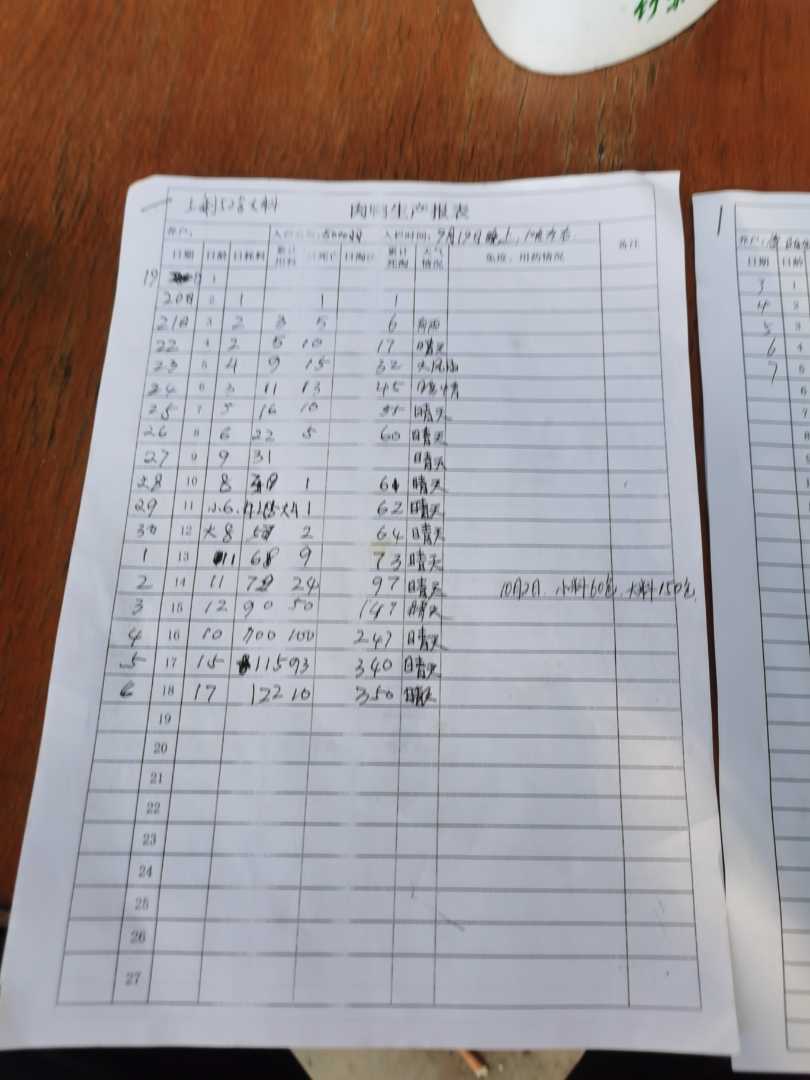 上剩52含大料
肉鸭生产报表
养户: 入户只数:5000羽 入栏时间:9月19日晚上
日期 日龄 日耗料 累计用料 日死亡 日淘汰 累计死淘 天气情况 免疫、用药情况 备注
19 1
20日 2 1 1 1
21日 3 2 3 5 6
22 4 2 5 10 17 晴天
23 5 4 9 15 32 大风
24 6 3 11 13 45
25 7 5 16 10 晴天
26 8 6 22 5 60 晴天
27 9 9 31 晴天
28 10 8 1 61 晴天
29 11 小6 1 62 晴天
30 12 大8 2 64 晴天
1 13 11 68 9 73 晴天
2 14 11 79 24 97 晴天 10月2日.小料60包.大料150包.
3 15 12 90 50 147 晴天
4 16 10 100 100 247 晴天
5 17 15 115 93 340 晴天
6 18 17 122 10 350 晴天
19
20
21
22
23
24
25
26
27
1
日期 日龄
3 1
4 2
5 3
6 4
7 5
6
7
8